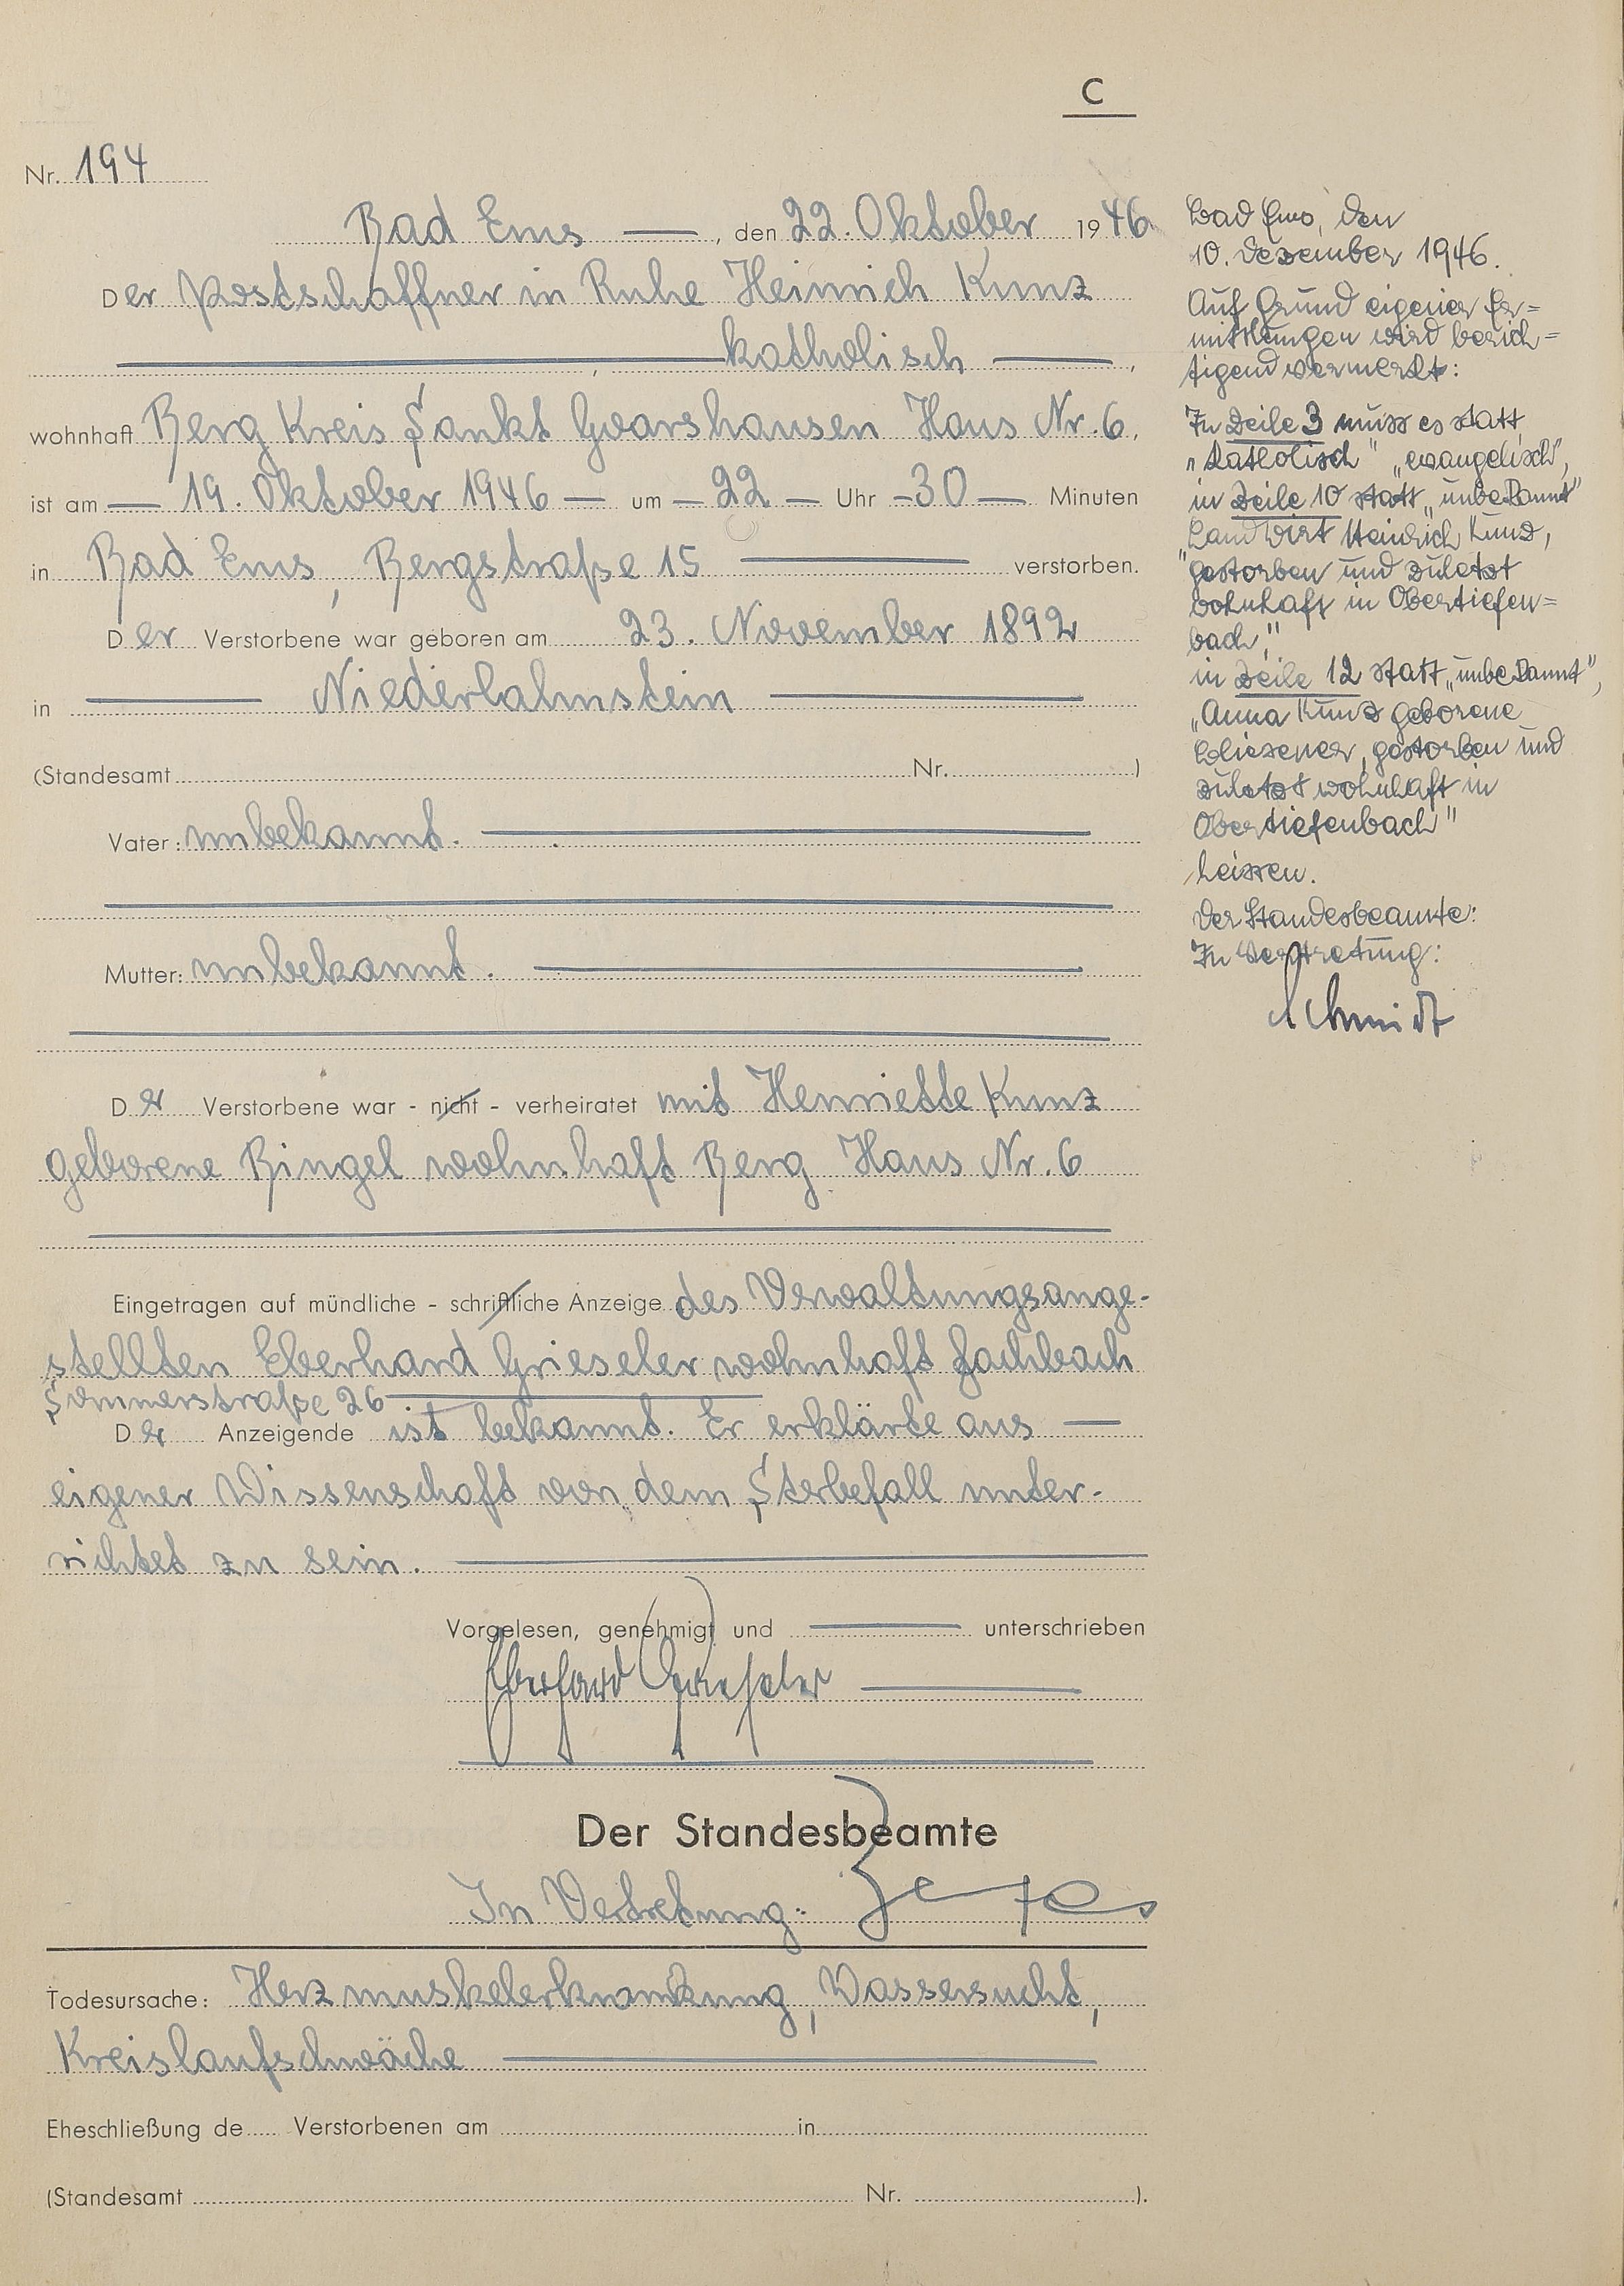 C
Nr. 194
Bad Ems —, den 22. Oktober 1946
Der Postschaffner in Ruhe Heinrich Kunz
, katholisch —,
wohnhaft Berg Kreis Sankt Goarshausen Haus Nr. 6,
ist am — 19. Oktober 1946 — um — 22 — Uhr — 30 — Minuten
in Bad Ems, Bergstraße 15 — verstorben.
Der Verstorbene war geboren am 23. November 1892
in — Niederlahnstein —
(Standesamt Nr. )
Vater: unbekannt. —
Mutter: unbekannt. —
Der Verstorbene war - nicht - verheiratet mit Henriette Kunz
geborene Ringel wohnhaft Berg Haus Nr. 6
Eingetragen auf mündliche - schriftliche Anzeige des Verwaltungsange-
stellten Eberhard Grieseler wohnhaft Fachbach
Sommerstraße 26 —
Der Anzeigende ist bekannt. Er erklärte aus —
eigener Wissenschaft von dem Sterbefall unter-
richtet zu sein. —
Vorgelesen, genehmigt und — unterschrieben
Eberhard Grieseler —
Der Standesbeamte
In Vertretung:
Todesursache: Herzmuskelerkrankung, Wassersucht,
Kreislaufschwäche —
Eheschließung de Verstorbenen am in
(Standesamt Nr. ).
Bad Ems, den
10. Dezember 1946.
Auf Grund eigener Er=
mittlungen wird berich=
tigend vermerkt:
In Zeile 3 muss es statt
"Katholisch" „evangelisch",
in Zeile 10 statt „unbekannt"
"Landwirt Heinrich Kunz,
gestorben und zuletzt
wohnhaft in Obertiefen=
bach",
in Zeile 12 statt „unbekannt",
„Anna Kunz geborene
gestorben und
zuletzt wohnhaft in
Obertiefenbach"
heissen.
Der Standesbeamte:
In Vertretung:
Schmidt